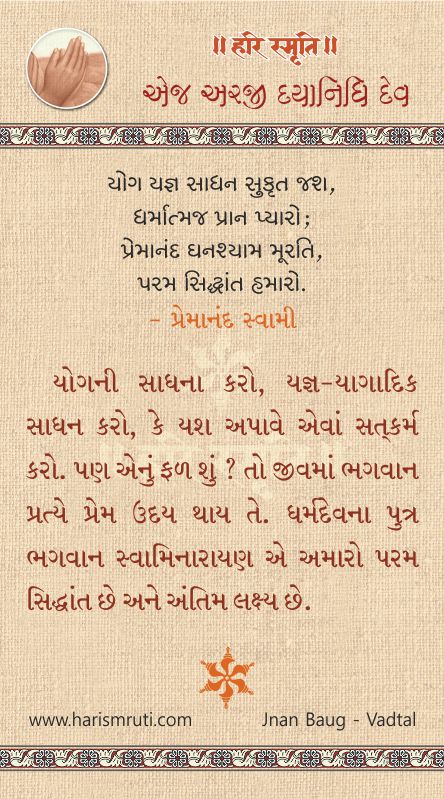 ॥ हरि स्मृति ॥
એજ અરજી દયાનિધિ દેવ
યોગ યજ્ઞ સાધન સુકૃત જશ,
ધર્માત્મજ પ્રાન પ્યારો;
પ્રેમાનંદ ઘનશ્યામ મૂરતિ,
પરમ સિદ્ધાંત હમારો.
- પ્રેમાનંદ સ્વામી
યોગની સાધના કરો, યજ્ઞ-યાગાદિક
સાધન કરો, કે યશ અપાવે એવાં સત્કર્મ
કરો. પણ એનું ફળ શું ? તો જીવમાં ભગવાન
પ્રત્યે પ્રેમ ઉદય થાય તે. ધર્મદેવના પુત્ર
ભગવાન સ્વામિનારાયણ એ અમારો પરમ
સિદ્ધાંત છે અને અંતિમ લક્ષ્ય છે.
www.harismruti.com Jnan Baug - Vadtal